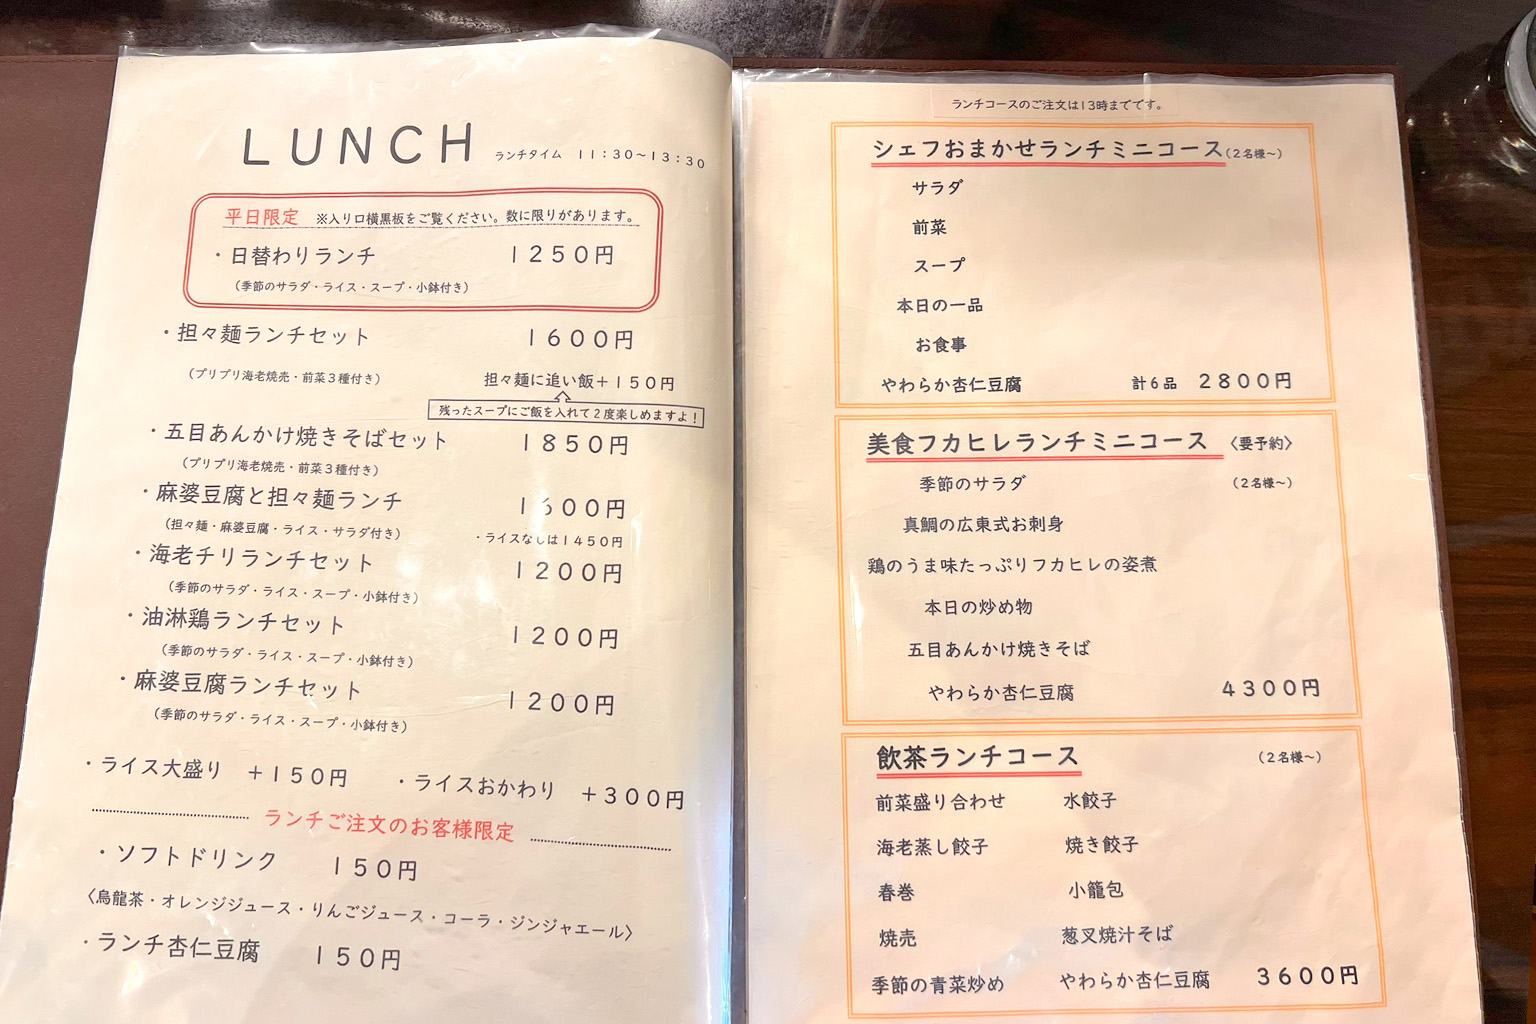 LUNCH ランチタイム 11:30～13:30
平日限定 ※入り口横黒板をご覧ください。数に限りがあります。
・日替わりランチ 1250円
(季節のサラダ・ライス・スープ・小鉢付き)
・担々麺ランチセット 1600円
(プリプリ海老焼売・前菜3種付き) 担々麺に追い飯+150円
残ったスープにご飯を入れて2度楽しめますよ！
・五目あんかけ焼きそばセット 1850円
(プリプリ海老焼売・前菜3種付き)
・麻婆豆腐と担々麺ランチ 1600円
(担々麺・麻婆豆腐・ライス・サラダ付き) ・ライスなしは1450円
・海老チリランチセット 1200円
(季節のサラダ・ライス・スープ・小鉢付き)
・油淋鶏ランチセット 1200円
(季節のサラダ・ライス・スープ・小鉢付き)
・麻婆豆腐ランチセット 1200円
(季節のサラダ・ライス・スープ・小鉢付き)
・ライス大盛り +150円 ・ライスおかわり +300円
ランチご注文のお客様限定
・ソフトドリンク 150円
〈烏龍茶・オレンジジュース・りんごジュース・コーラ・ジンジャエール〉
・ランチ杏仁豆腐 150円
ランチコースのご注文は13時までです。
シェフおまかせランチミニコース(2名様～)
サラダ
前菜
スープ
本日の一品
お食事
やわらか杏仁豆腐 計6品 2800円
美食フカヒレランチミニコース 〈要予約〉
季節のサラダ (2名様～)
真鯛の広東式お刺身
鶏のうま味たっぷりフカヒレの姿煮
本日の炒め物
五目あんかけ焼きそば
やわらか杏仁豆腐 4300円
飲茶ランチコース (2名様～)
前菜盛り合わせ 水餃子
海老蒸し餃子 焼き餃子
春巻 小籠包
焼売 葱叉焼汁そば
季節の青菜炒め やわらか杏仁豆腐 3600円